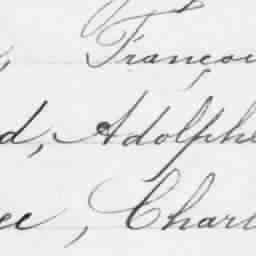 , Françoi
d, Adolphe
ee, Charl